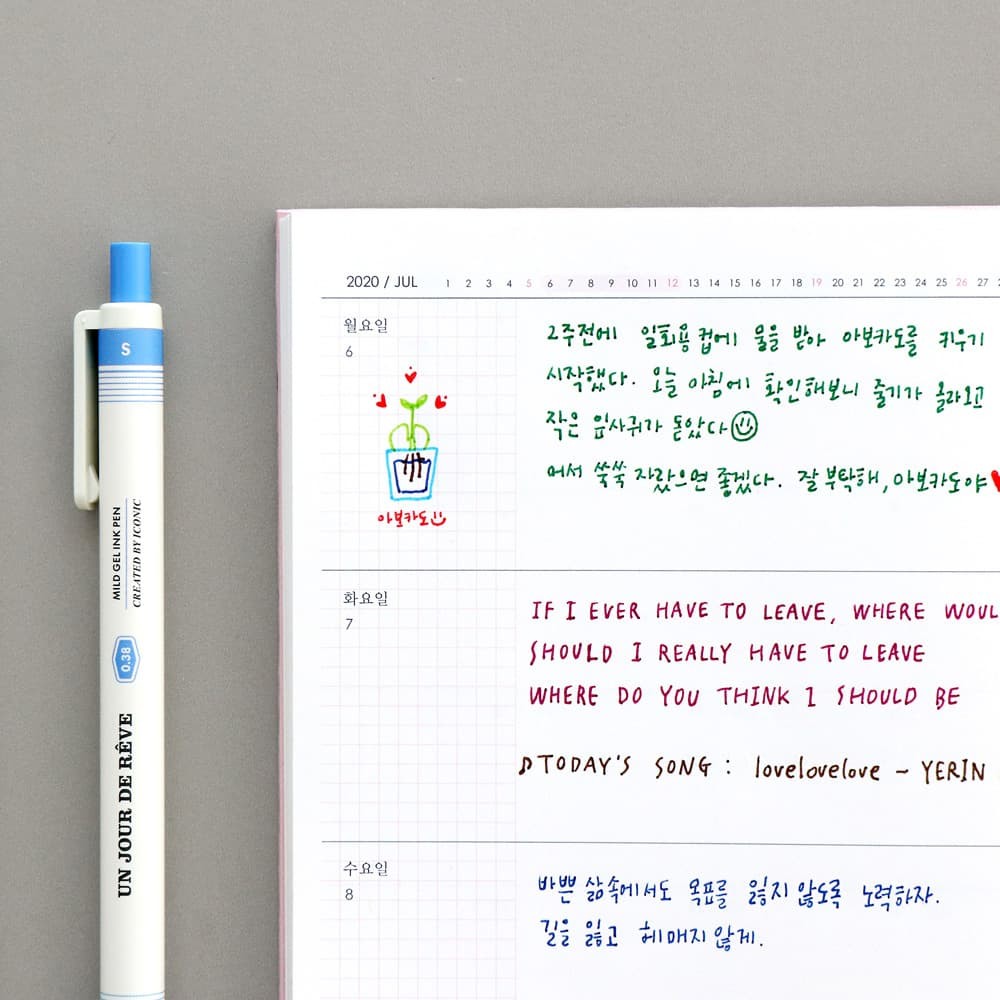 2020 / JUL 1 2 3 4 5 6 7 8 9 10 11 12 13 14 15 16 17 18 19 20 21 22 23 24 25 26 27
월요일
6
2주전에 일회용컵에 물을 받아 아보카도를 키우기
시작했다. 오늘 아침에 확인해보니 줄기가 올라오고
작은 잎사귀가 돋았다
어서 쑥쑥 자랐으면 좋겠다. 잘 부탁해, 아보카도야
아보카도
화요일
7
IF I EVER HAVE TO LEAVE, WHERE
SHOULD I REALLY HAVE TO LEAVE
WHERE DO YOU THINK I SHOULD BE
♪TODAY'S SONG : lovelovelove ~ YERIN
수요일
8
바쁜 삶속에서도 목표를 잃지 않도록 노력하자.
길을 잃고 헤매지 않게.
S
MILD GEL INK PEN
CREATED BY ICONIC
0.38
UN JOUR DE RÊVE